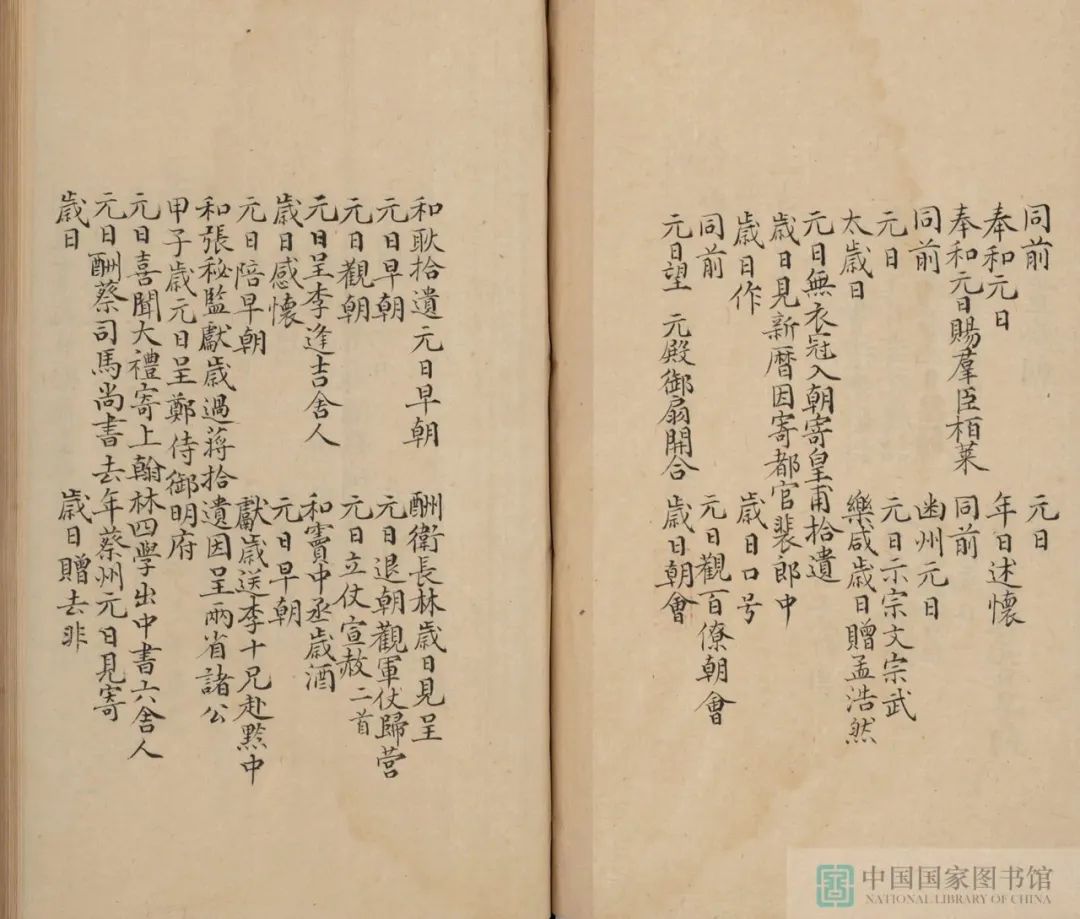 同前 元日
奉和元日 年日述懷
奉和元日賜羣臣栢菜 同前
同前 幽州元日
元日 元日示宗文宗武
太歲日 樂咸歲日贈孟浩然
元日無衣冠入朝寄皇甫拾遺
歲日見新曆因寄都官裴郎中
歲日作 歲日口号
同前 元日觀百僚朝會
元日望 元殿御扇開合 歲日朝會
和耿拾遺元日早朝 酬衛長林歲日見呈
元日早朝 元日退朝觀軍仗歸营
元日觀朝 元日立仗宣赦二首
元日呈李逢吉舍人 和竇中丞歲酒
歲日感懷 元日早朝
元日陪早朝 獻歲送李十兄赴黔中
和張秘監獻歲過蔣拾遺因呈兩省諸公
甲子歲元日呈鄭侍御明府
元日喜聞大禮寄上翰林四學出中書六舍人
元日酬蔡司馬尚書去年蔡州元日見寄
歲日 歲日贈去非
中国国家图书馆
NATIONAL LIBRARY OF CHINA